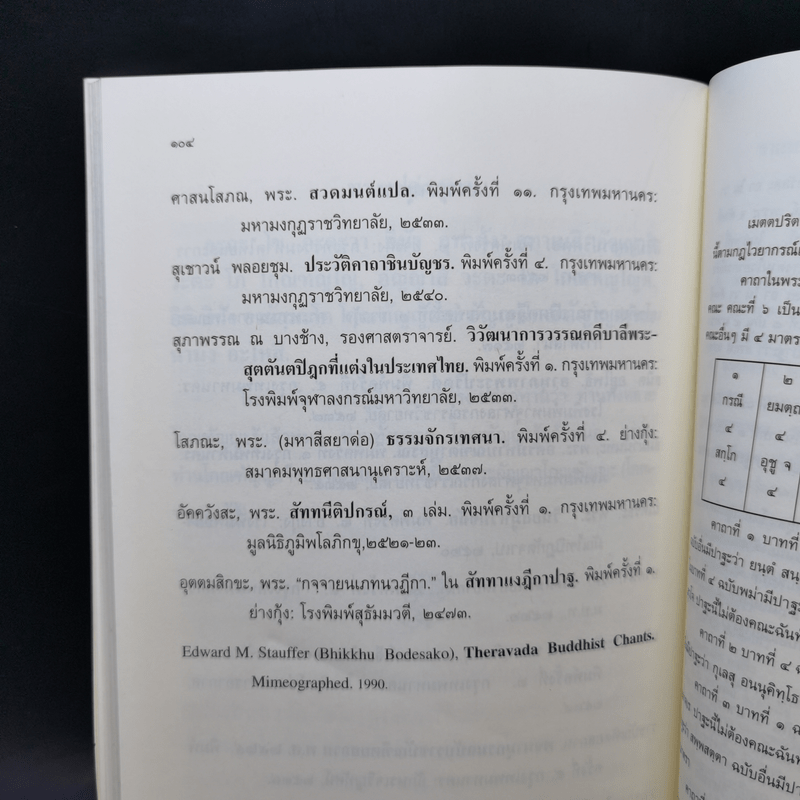 ๑๐๔
ศาสนโสภณ, พระ. สวดมนต์แปล. พิมพ์ครั้งที่ ๑๑. กรุงเทพมหานคร:
มหามงกุฏราชวิทยาลัย, ๒๕๓๓.
สุเชาวน์ พลอยชุม. ประวัติคาถาชินบัญชร. พิมพ์ครั้งที่ ๔. กรุงเทพมหานคร:
มหามงกุฏราชวิทยาลัย, ๒๕๔๐.
สุภาพรรณ ณ บางช้าง, รองศาสตราจารย์. วิวัฒนาการวรรณคดีบาลีพระ-
สุตตันตปิฎกที่แต่งในประเทศไทย. พิมพ์ครั้งที่ ๑. กรุงเทพมหานคร:
โรงพิมพ์จุฬาลงกรณ์มหาวิทยาลัย, ๒๕๓๓.
โสภณะ, พระ. (มหาสีสยาด่อ) ธรรมจักรเทศนา. พิมพ์ครั้งที่ ๔. ย่างกุ้ง:
สมาคมพุทธศาสนานุเคราะห์, ๒๕๓๗.
อัคควังสะ, พระ. สัททนีติปกรณ์, ๓ เล่ม. พิมพ์ครั้งที่ ๑. กรุงเทพมหานคร:
มูลนิธิภูมิพโลภิกขุ,๒๕๒๑-๒๓.
อุตตมสิกขะ, พระ. “กจฺจายนเภทนวฏีกา.” ใน สัททาแงฎีกาปาฐ. พิมพ์ครั้งที่ ๑.
ย่างกุ้ง: โรงพิมพ์สุธัมมวตี, ๒๔๗๓.
Edward M. Stauffer (Bhikkhu Bodesako), Theravada Buddhist Chants.
Mimeographed. 1990.
เมตตปริต
นี้ตามกฎไวยากรณ์
คาถาในพระ
คณะ คณะที่ ๖ เป็น
คณะอื่นๆ มี ๔ มาตร
๑ ๒
กรณี ยมตฺถ
๔ ๔
สกฺโก อุชู จ
๔ ๔
คาถาที่ ๑ บาทที่
ฉบับอื่นมีปาฐะว่า ยนฺตํ สนฺ
บาทที่ ๔ ฉบับพม่ามีปาฐะ
ปาฐะนี้ไม่ต้องคณะฉันท์
คาถาที่ ๒ บาทที่ ๔
ปาฐะว่า กุเลสุ อนนุคิทฺโธ
คาถาที่ ๓ บาทที่ ๑
ปาฐะนี้ไม่ต้องคณะฉัน
สพฺพสตฺตา ฉบับอื่นมีปา
คาถาที่